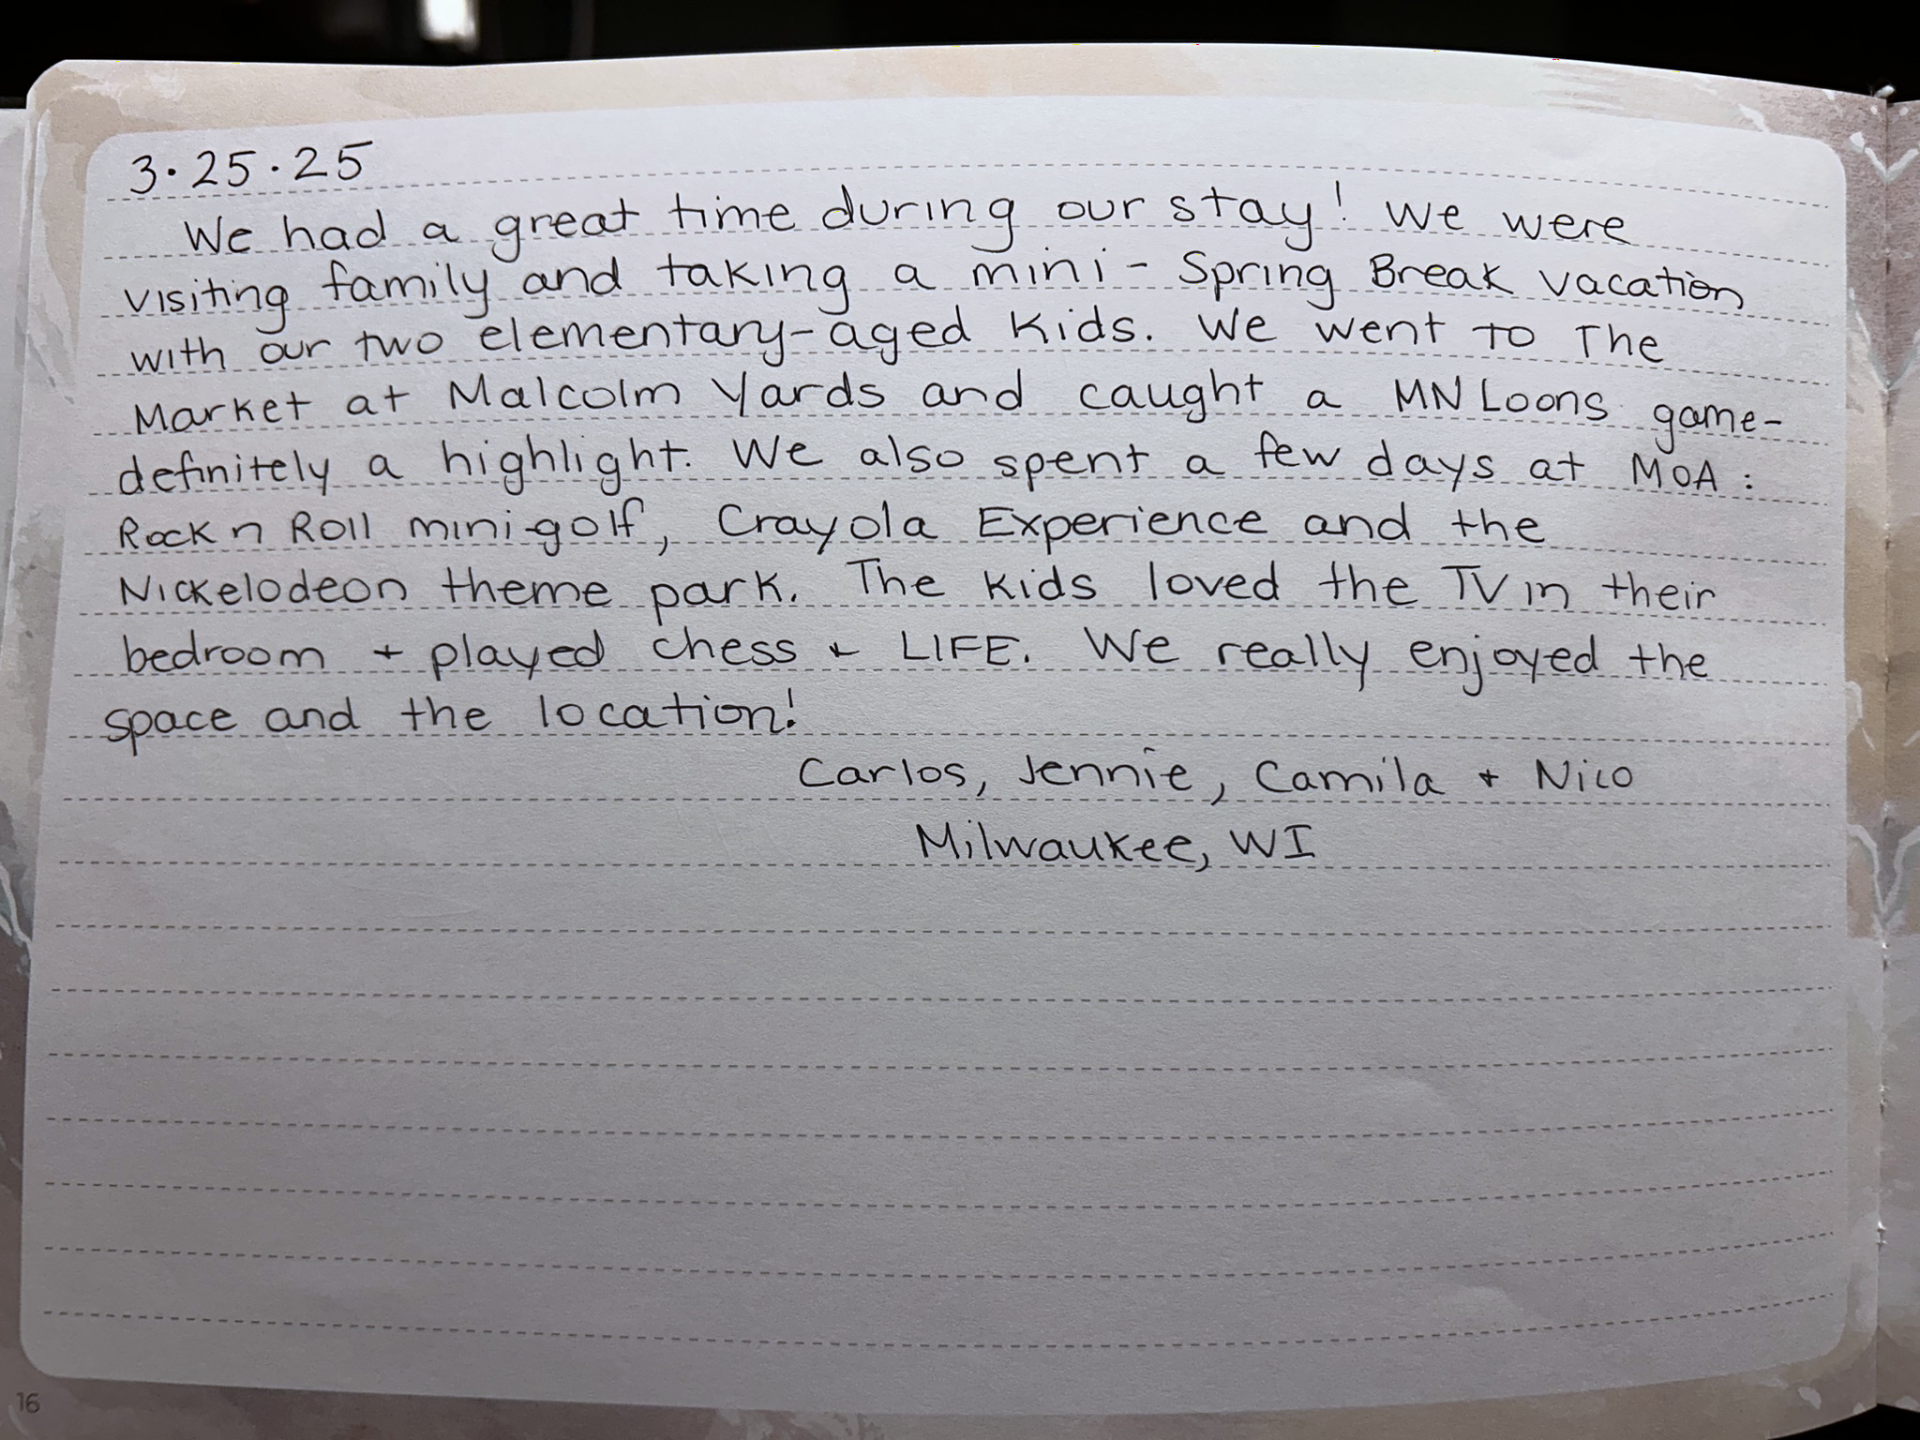 3.25.25
We had a great time during our stay! We were
visiting family and taking a mini-Spring Break vacation
with our two elementary-aged kids. We went to The
Market at Malcolm Yards and caught a MN Loons game-
definitely a highlight. We also spent a few days at MOA:
Rock n Roll mini-golf, Crayola Experience and the
Nickelodeon theme park. The kids loved the TV in their
bedroom + played chess + LIFE. We really enjoyed the
space and the location!
Carlos, Jennie, Camila + Nico
Milwaukee, WI
16